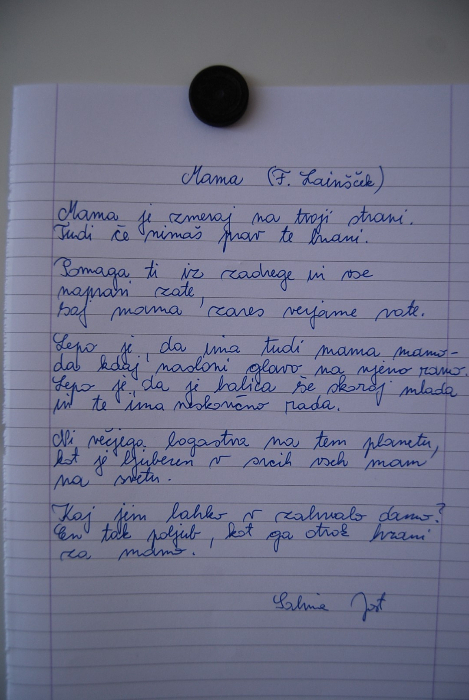 Mama (F. Lainšček)
Mama je zmeraj na tvoji strani.
Tudi če nimaš prav te brani.
Pomaga ti iz zadrege in vse
napravi zate,
saj mama zares verjame vate.
Lepo je, da ima tudi mama mamo-
da kdaj nasloni glavo na njeno ramo.
Lepo je, da je babica še skoraj mlada
in te ima neskončno rada.
Ni večjega bogastva na tem planetu,
kot je ljubezen v srcih vseh mam
na svetu.
Kaj jim lahko v zahvalo damo?
En tak poljub, kot ga otrok hrani
za mamo.
Sabina Jošt